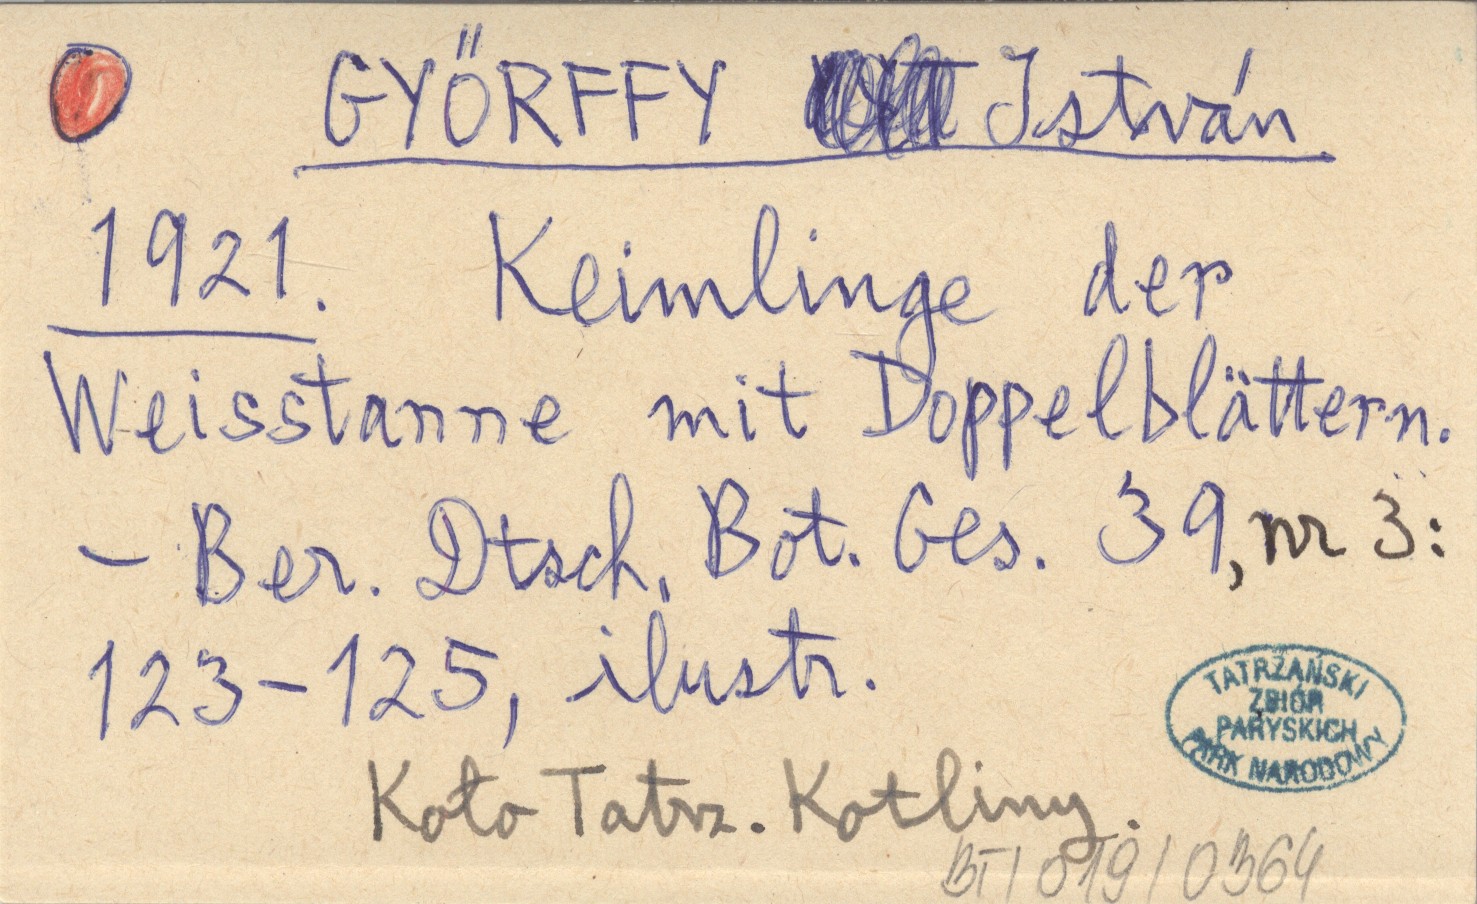 GYŐRFFY István
1921. Keimlinge der
Weisstanne mit Doppelblättern.
- Ber. Dtsch. Bot. Ges. 39, nr 3:
123-125, ilustr.
TATRZAŃSKI
ZBIÓR
PARYSKICH
PARK NARODOWY
Koło Tatrz. Kotliny.
BT/019/0364